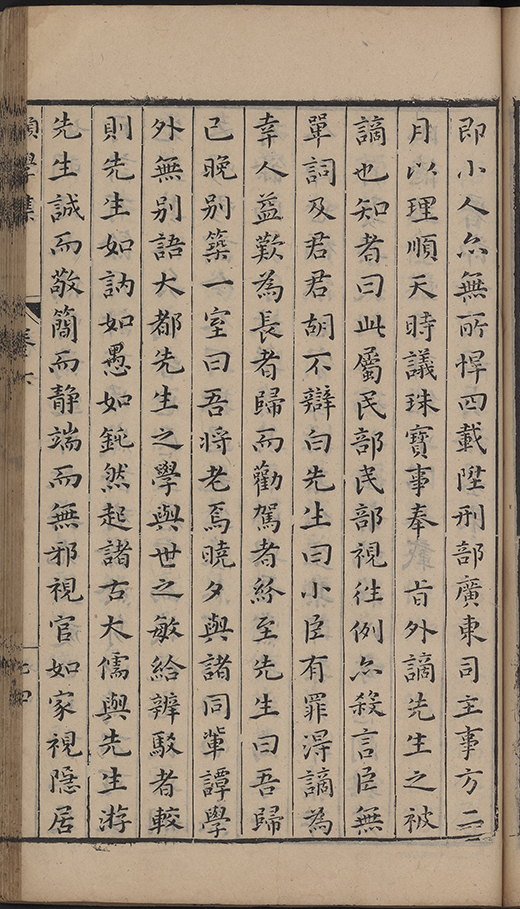 即小人亦無所悍四載陞刑部廣東司主事方二
月以理順天時議珠寶事奉　旨外謫先生之被
謫也知者曰此屬民部民部視徃例亦殺言臣無
單詞及君君胡不辯白先生曰小臣有罪淂謫為
幸人益歎為長者歸而勸駕者紛至先生曰吾歸
已晚别築一室曰吾将老焉曉夕與諸同軰譚學
外無别語大都先生之學與世之敏給辨駁者較
則先生如訥如愚如鈍然起諸古大儒與先生游
先生誠而敬簡而静端而無邪視官如家視隱居
學集